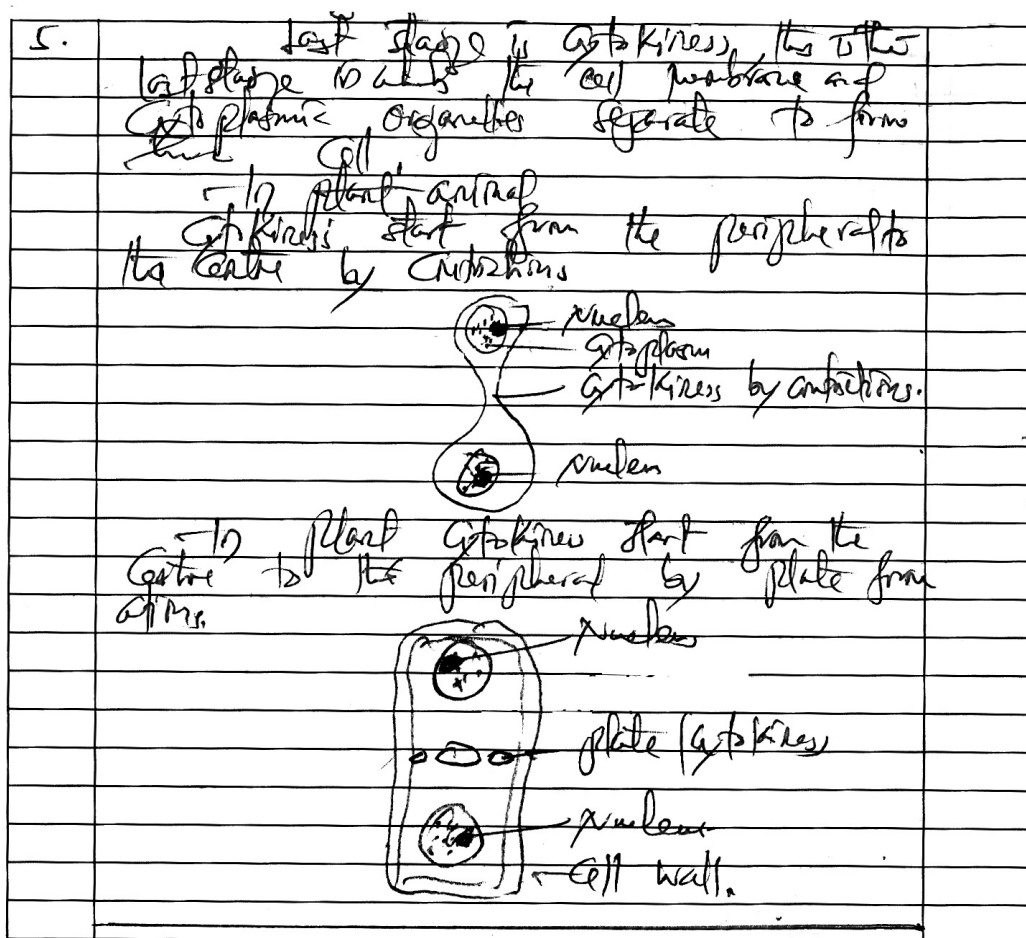 5. Last stage is Cytokiness, this is the
Last stage in which the cell membrane and
Cytoplasmic organelles separate to form
Cell.
- In plant animal
Cytokiness start from the peripheral to
the Centre by
Nucleus
Cytoplasm
Cytokiness by
Nucleus
- In plant Cytokiness start from the
Centre to the peripheral by plate form
ations.
Nucleus
plate (Cytokiness
Nucleus
Cell wall.